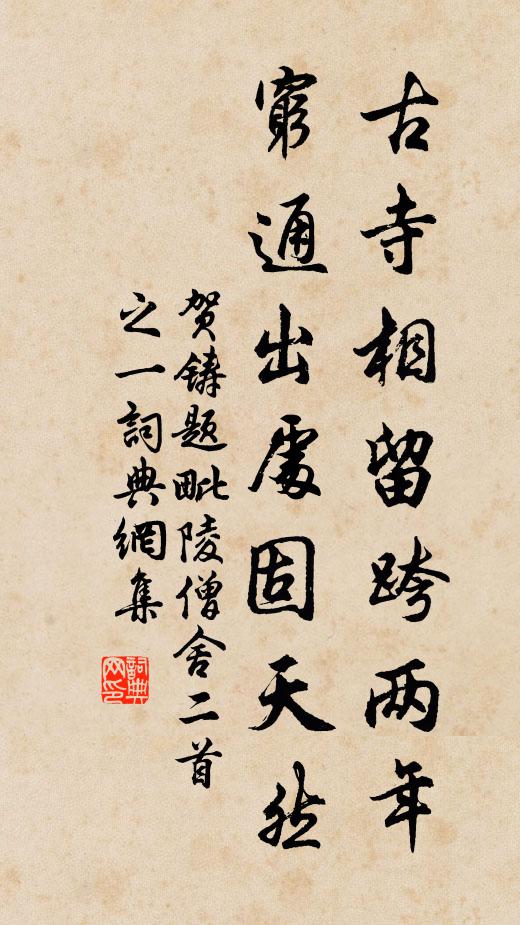 古寺相留跨两年
窮通出處固天然
贺鑄题毗陵僧舍二首
之一詞典網集
詞典网印